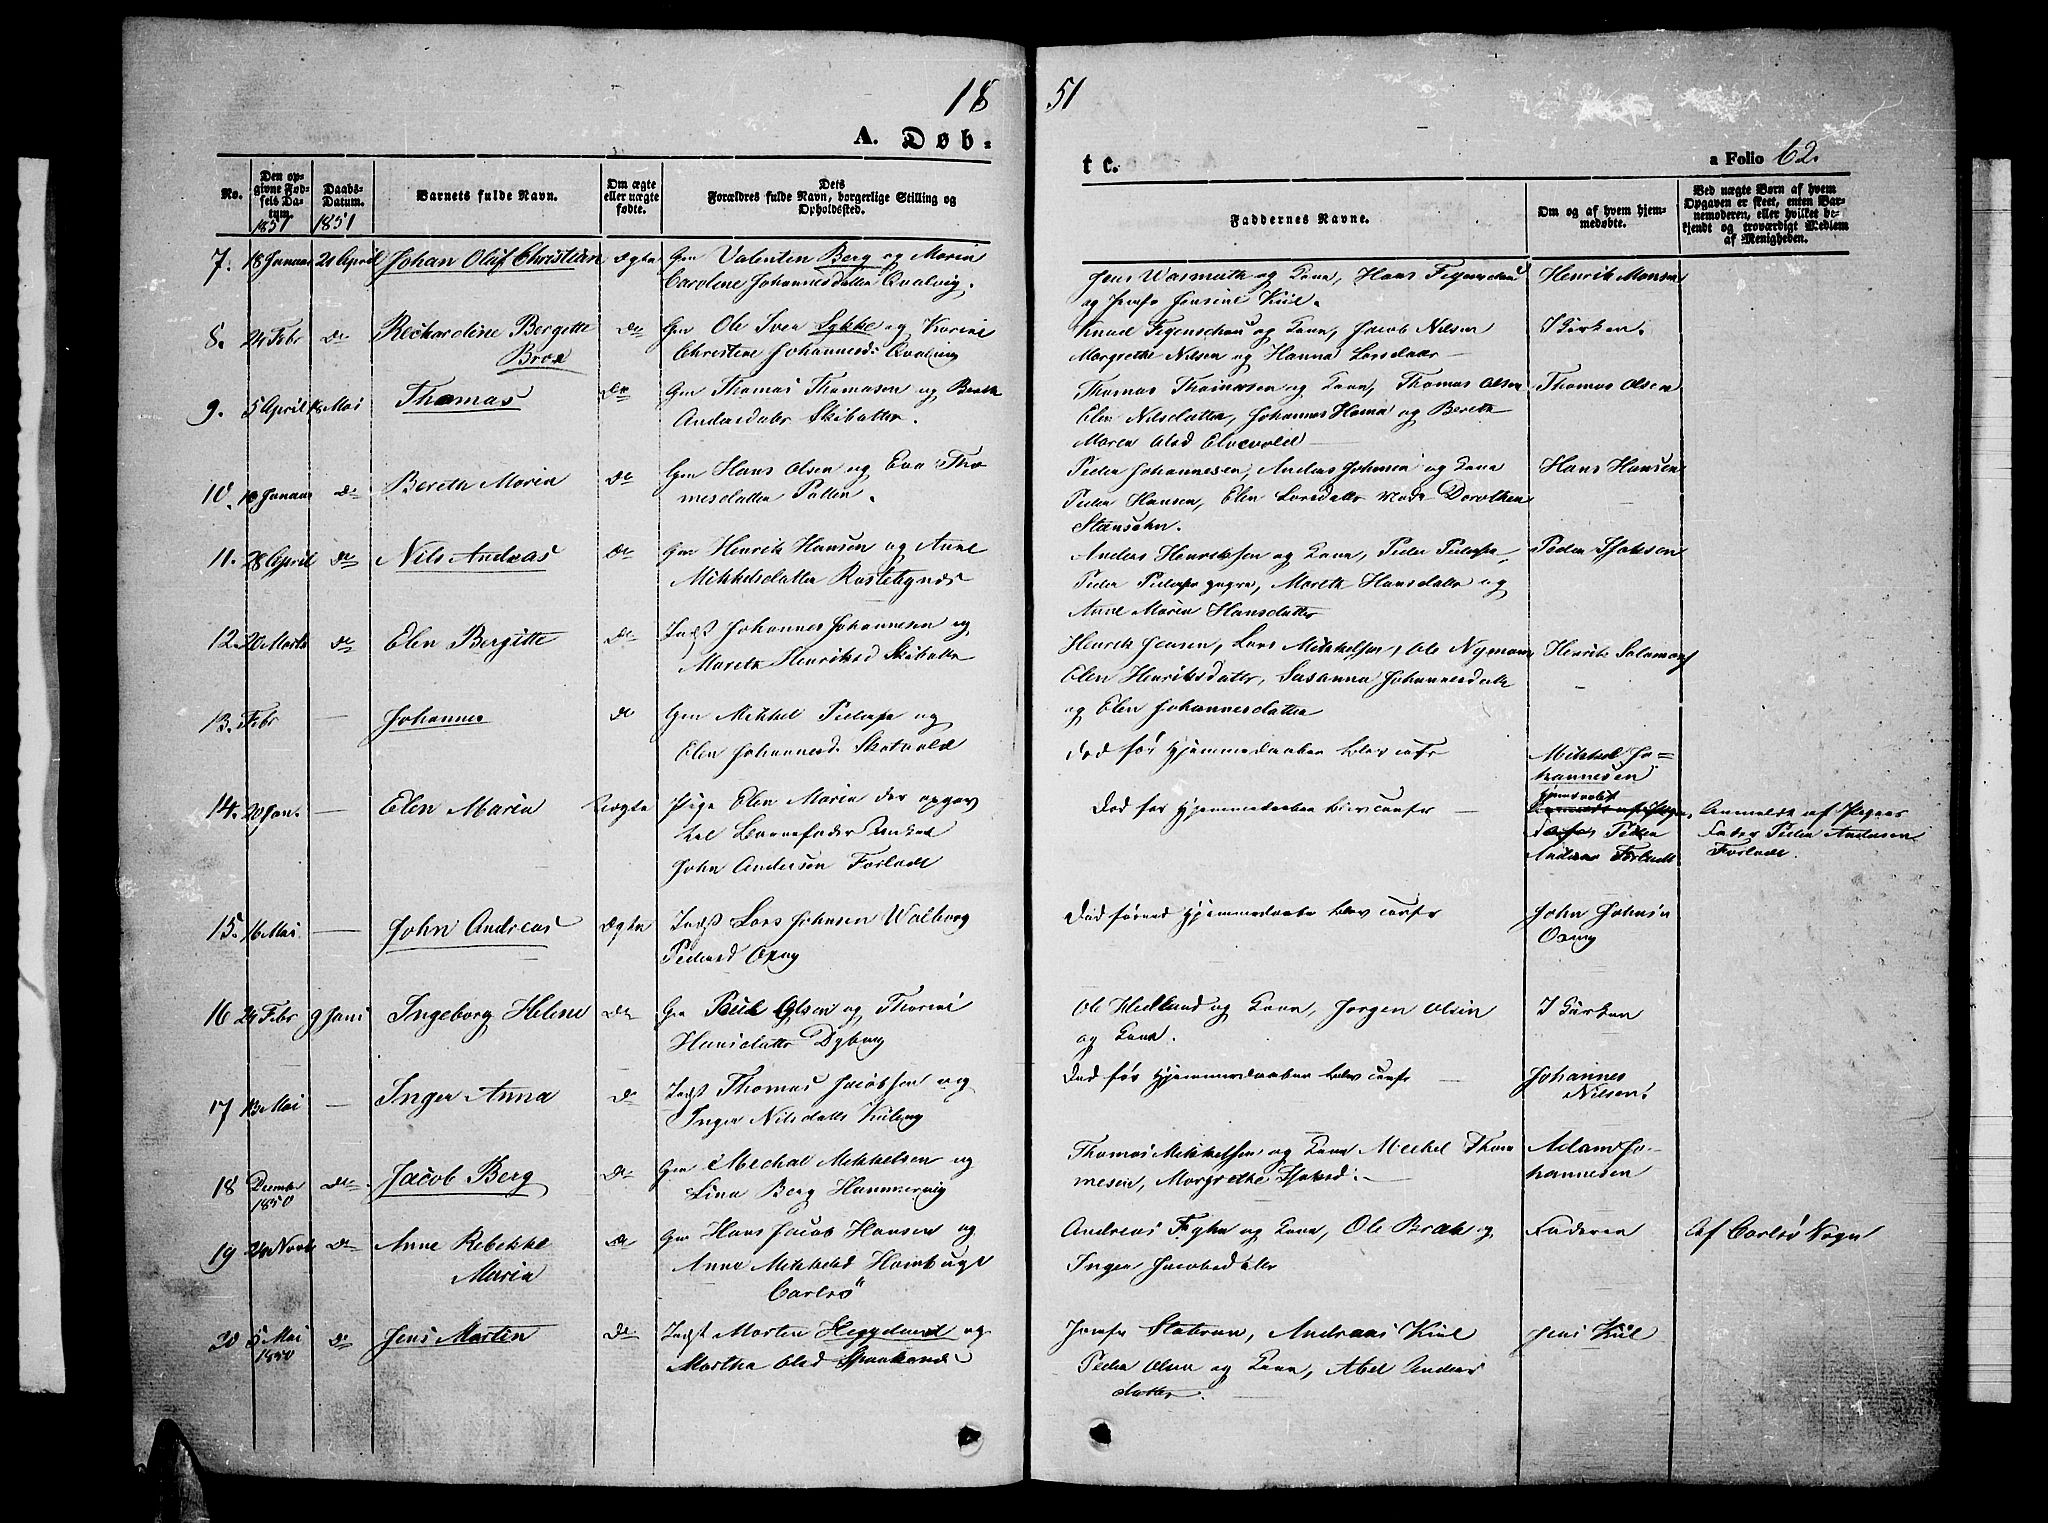 18
51
A. Døb-
t c.
a Folio 62.
No.
Den op-
givne Fød-
sels Da-
tum.
1851
Daabs-
Datum.
1851
Barnets fulde Navn.
Om ægte
eller uægte
fødte.
Dets
Forældres fulde Navn, borgerlige Stilling og
Opholdsted.
Faddernes Navne.
Om og af hvem hjem-
medøbte.
Ved uægte Børn af hvem
Opgaven er skeet, enten Bar-
nemoderen, eller hvilket be-
kjendt og troværdigt Medlem
af Menigheden.
7. 18 Januar 21 April Johan Oluf Christian Ægte Gm Valentin Berg og Maria
Caroline Johannesdatter Qvalvig.
Jens Wasmuth og Kone, Hans Figenschou
og Jomfr Jensine Kiil.
Henrik Monsen
8. 24 Febr do Richardine Bergitte
Brox
do Gm Ole Iver Lykke og Karine
Christine Johannesd: Qvalvig
Knud Figenschou og Kone, Jacob Nilsen
Margrethe Nilsen og Hanna Larsdatter
I Kirken.
9. 5 April 18 Mai Thomas do Gm Thomas Thomasen og Bereth
Andersdatter Skibotten.
Thomas Thomassen og Kone, Thomas Olsen
Elen Nilsdatter, Johannes Hema og Bereth
Maren Olsd Elvevold
Thomas Olsen
10. 10 Januar do Bereth Maria do Gm Hans Olsen og Eva Tho
mesdatter Pollen.
Peder Johannesen, Anders Johnsen og Kone
Peder Hansen, Elen Larsdatter Mads Dorothea
Steensohn.
Hans Hansen
11. 28 April do Nils Andreas do Gm Henrik Hansen og Anne
Mikkelsdatter Rastebynes
Anders Henriksen og Kone, Peder Peders
Peder Peders yngre, Mareth Hansdatter og
Anne Maria Hansdatter
Peder Isaksen
12. 20 Marts do Elen Bergitte do Indst Johannes Johannesen og
Mareth Henriksd Skibotten
Henrik Jensen, Lars Mikkelsen, Ole Nyman
Elen Henriksdatter, Susanna Johannesdatter
og Elen Johannesdatter
Henrik Salamons
13. Febr — Johannes do Gm Mikkel Peders og
Elen Johannesd: Skotvold
Død før Hjemmedaaben blev confr
Mikkel Jo-
hannesen
14. 20 Jan. — Elen Maria Uægte Pige Elen Maria der opgav
til Barnefader Enkem
John Andersen Forlode
Død før Hjemmedaaben blev confr
Hjemmedøbt
Peder
Andersen Forlodt
Anmeldt af Pigens
Fader Peder Andersen
Forlode.
15. 16 Mai — John Andreas Ægte Indst Lars Johnsen Walborg
Pedersd Oxvig
Død førend Hjemmedaabe blev confr
John Johnsen
Oxvig
16 24 Febr 9 Juni Ingeborg Helene do Gm Poul Olsen og Thorine
Hansdatter Dybvig
Ole Hedlund og Kone, Jørgen Olsen
og Kone.
I Kirken
17 13 Mai — Inger Anna do Indst Thomas Jacobsen og
Inger Nilsdatter Kitvig
Død før Hjemmedaaben blev confr
Johannes
Nilsen
18 Decembr
1850
do Jacob Berg do Gm Mechal Mikkelsen og
Lina Berg Hammervig
Thomas Mikkelsen og Kone Mechel Thom
mesen, Margrethe Isaksd:
Adam Jo-
hannesen
19 24 Novbr do Anne Rebekka
Maria
do Gm Hans Jacob Hansen og
Anne Mikkelsd
Carlsø
Andreas Fyhn og Kone, Ole Bræk og
Inger Jacobsdatter
Faderen Af Carlsø Sogn
20 5 Mai
1850
do Jens Morten do Indst Morten Heggelund og
Martha Olsd Spaakenes
Jomfr Stabrun, Andreas Kiil
Peder Olsen og Kone, Abel Anders
datter.
Jens Kiil